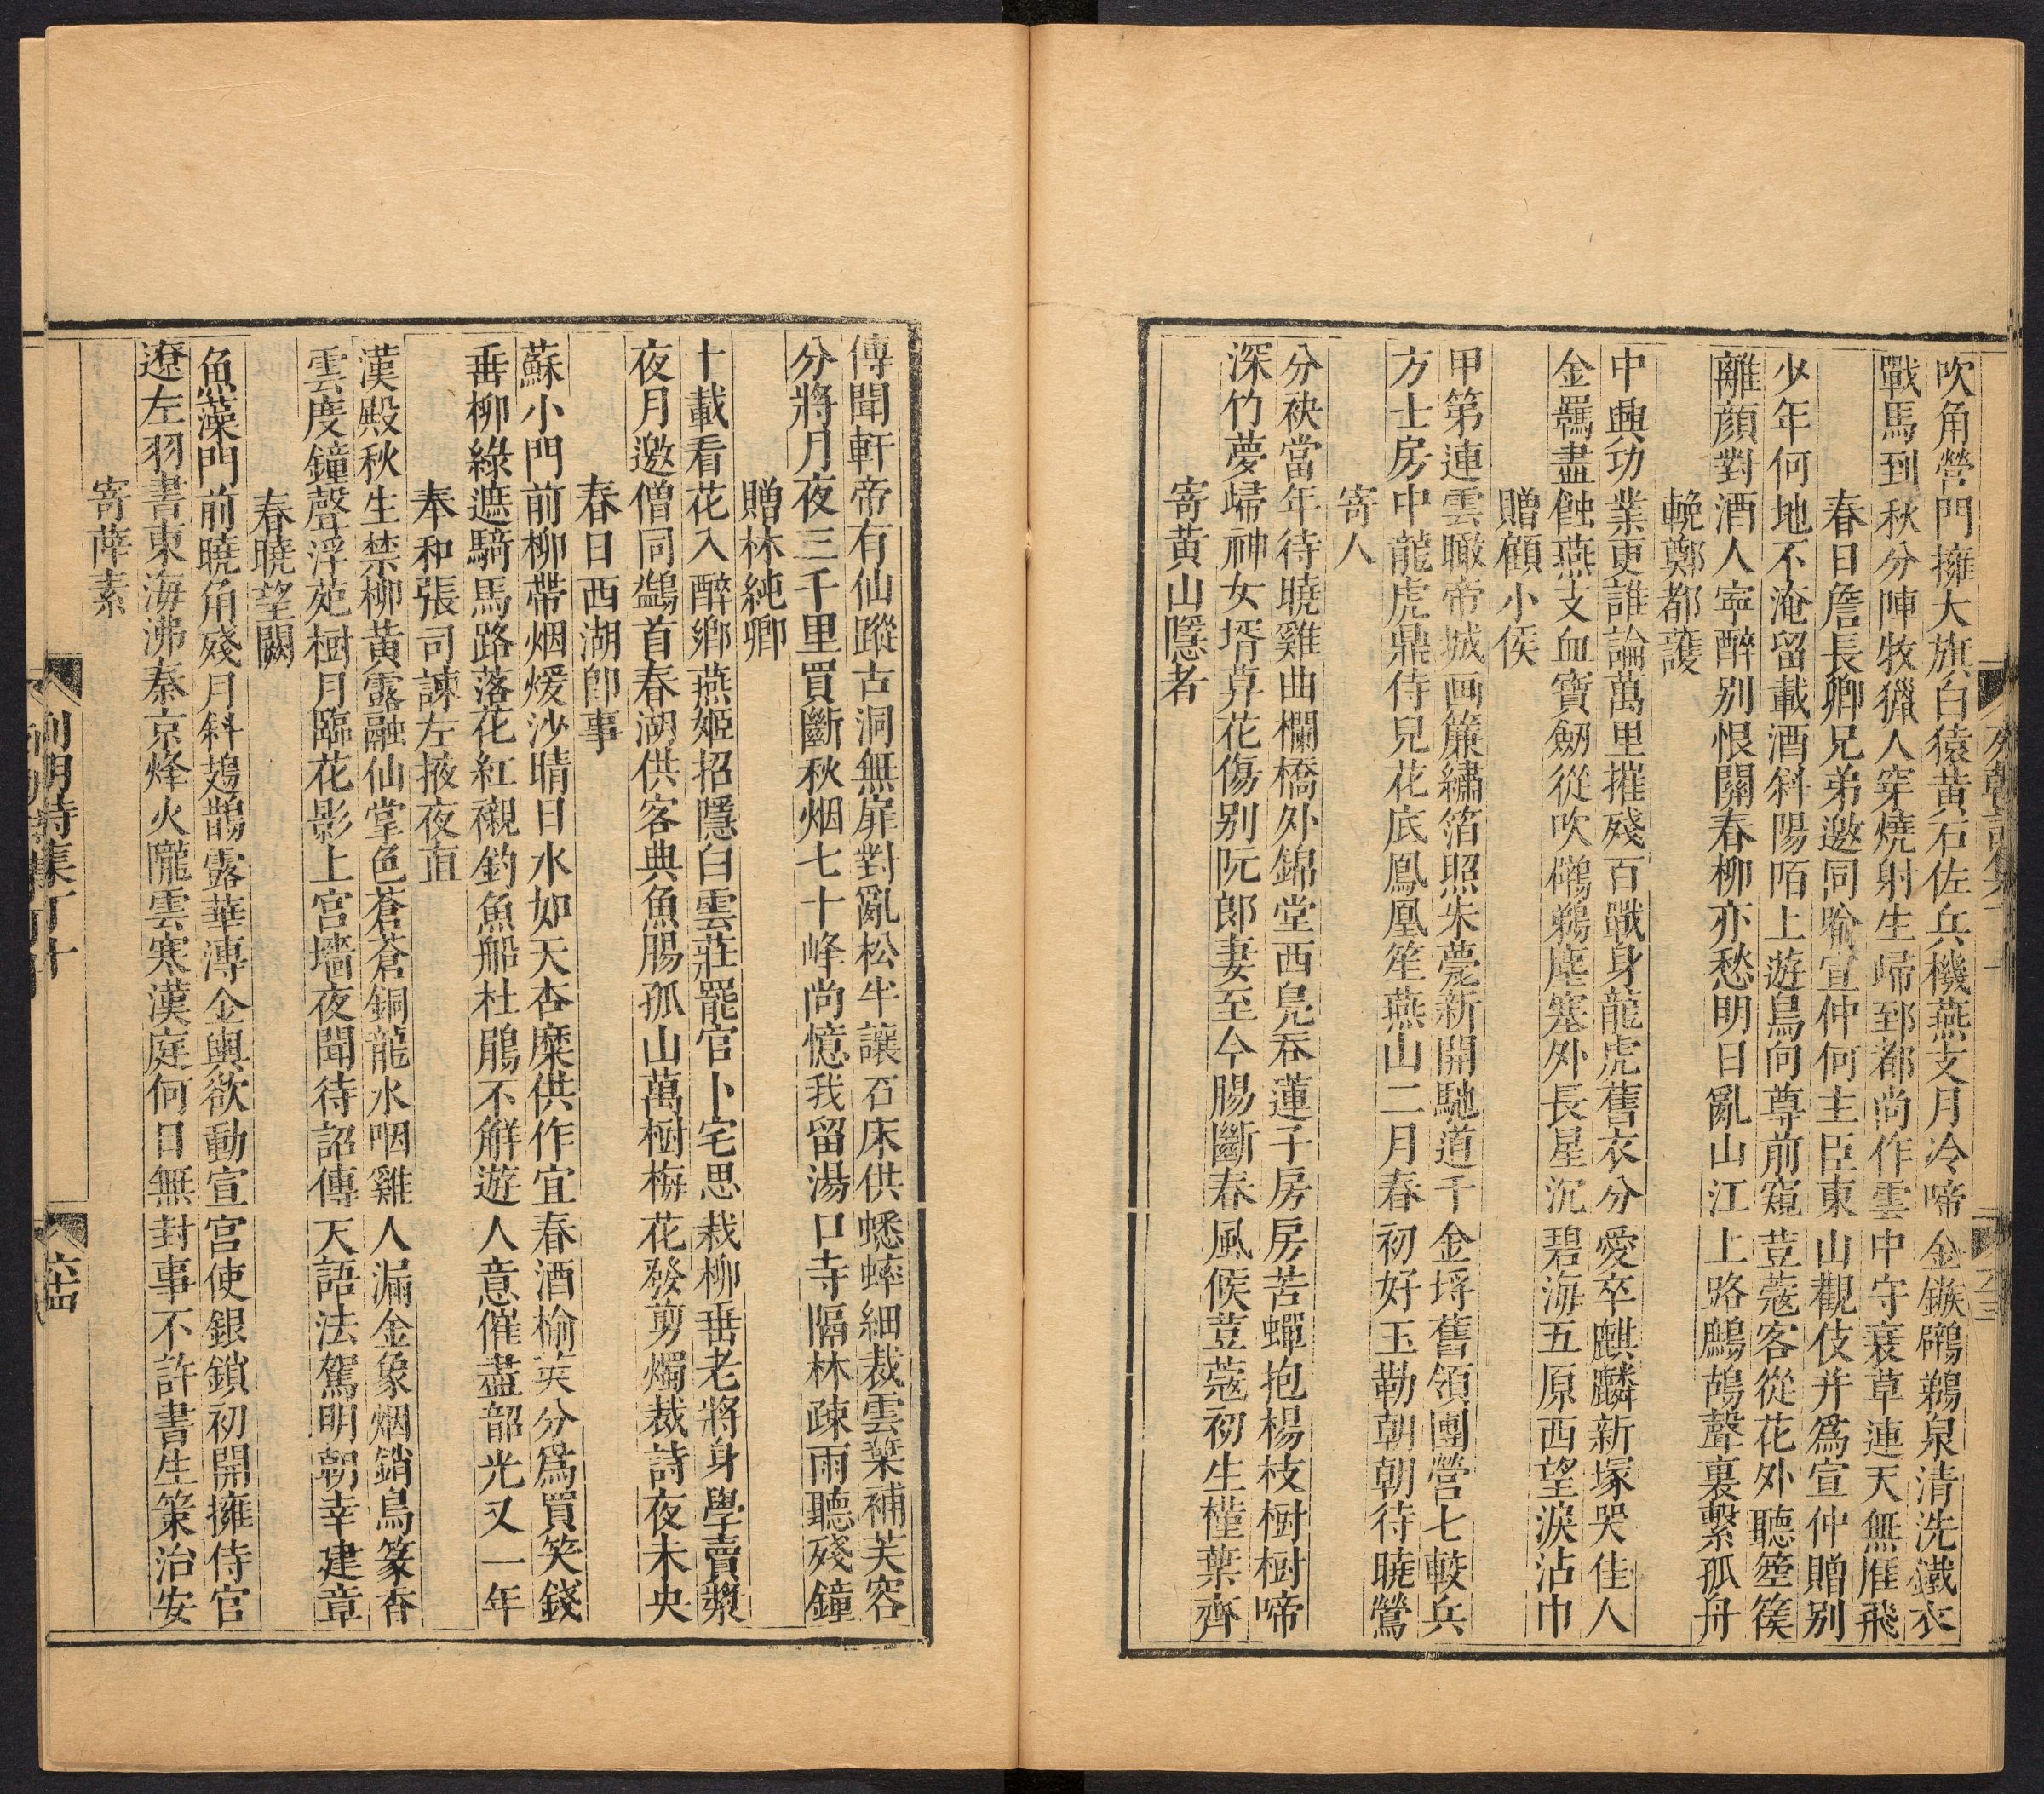 吹角營門擁大旗白猿黃石佐兵機燕支月冷啼金鏃鸊鵜泉清洗鐵衣
戰馬到秋分陣牧獵人穿燒射生歸郅都尚作雲中守衰草連天無雁飛
春日詹長卿兄弟邀同喻宣仲何主臣東山觀伎并為宣仲贈别
少年何地不淹留載酒斜陽陌上遊鳥向尊前窺荳蔻客從花外聽箜篌
離顏對酒人寧醉别恨關春柳亦愁明日亂山江上路鷓鴣聲裏繫孤舟
輓鄭都護
中興功業更誰論萬里摧殘百戰身龍虎舊衣分愛卒麒麟新塚哭佳人
金羈盡蝕燕支血寶劒從吹鸊鵜塵塞外長星沉碧海五原西望淚沾巾
贈顧小侯
甲第連雲瞰帝城画簾繡箔照朱甍新開馳道千金埒舊領團營七較兵
方士房中龍虎鼎侍兒花底鳳凰笙燕山二月春初好玉勒朝朝待曉鶯
寄人
分袂當年待曉雞曲欄橋外錦堂西鳧吞蓮子房房苦蟬抱楊枝樹樹啼
深竹夢歸神女壻葬花傷别阮郎妻至今腸斷春風候荳蔻初生槿葉齊
寄黃山隱者
傳聞軒帝有仙蹤古洞無扉對亂松半讓石床供蟋蟀細裁雲葉補芙容
分將月夜三千里買斷秋烟七十峰尚憶我留湯口寺隔林疎雨聽殘鐘
贈林純卿
十載看花入醉鄉燕姬招隱白雲莊罷官卜宅思栽柳垂老將身學賣漿
夜月邀僧同鷁首春湖供客典魚腸孤山萬樹梅花發剪燭裁詩夜未央
春日西湖卽事
蘇小門前柳帶烟煖沙晴日水如天杏糜供作宜春酒榆莢分爲買笑錢
垂柳綠遮騎馬路落花紅襯釣魚船杜鵑不解遊人意催盡韶光又一年
奉和張司諫左掖夜直
漢殿秋生禁柳黃露融仙掌色蒼蒼銅龍水咽雞人漏金象烟銷鳥篆香
雲度鐘聲浮苑樹月臨花影上宮墻夜聞待詔傳天語法駕明朝幸建章
春曉望闕
魚藻門前曉角殘月斜鳷鵲露華漙金輿欲動宣宮使銀鎖初開擁侍官
遼左羽書東海沸秦京烽火隴雲寒漢庭何日無封事不許書生策治安
寄薛素
列朝詩集丁十
六十四